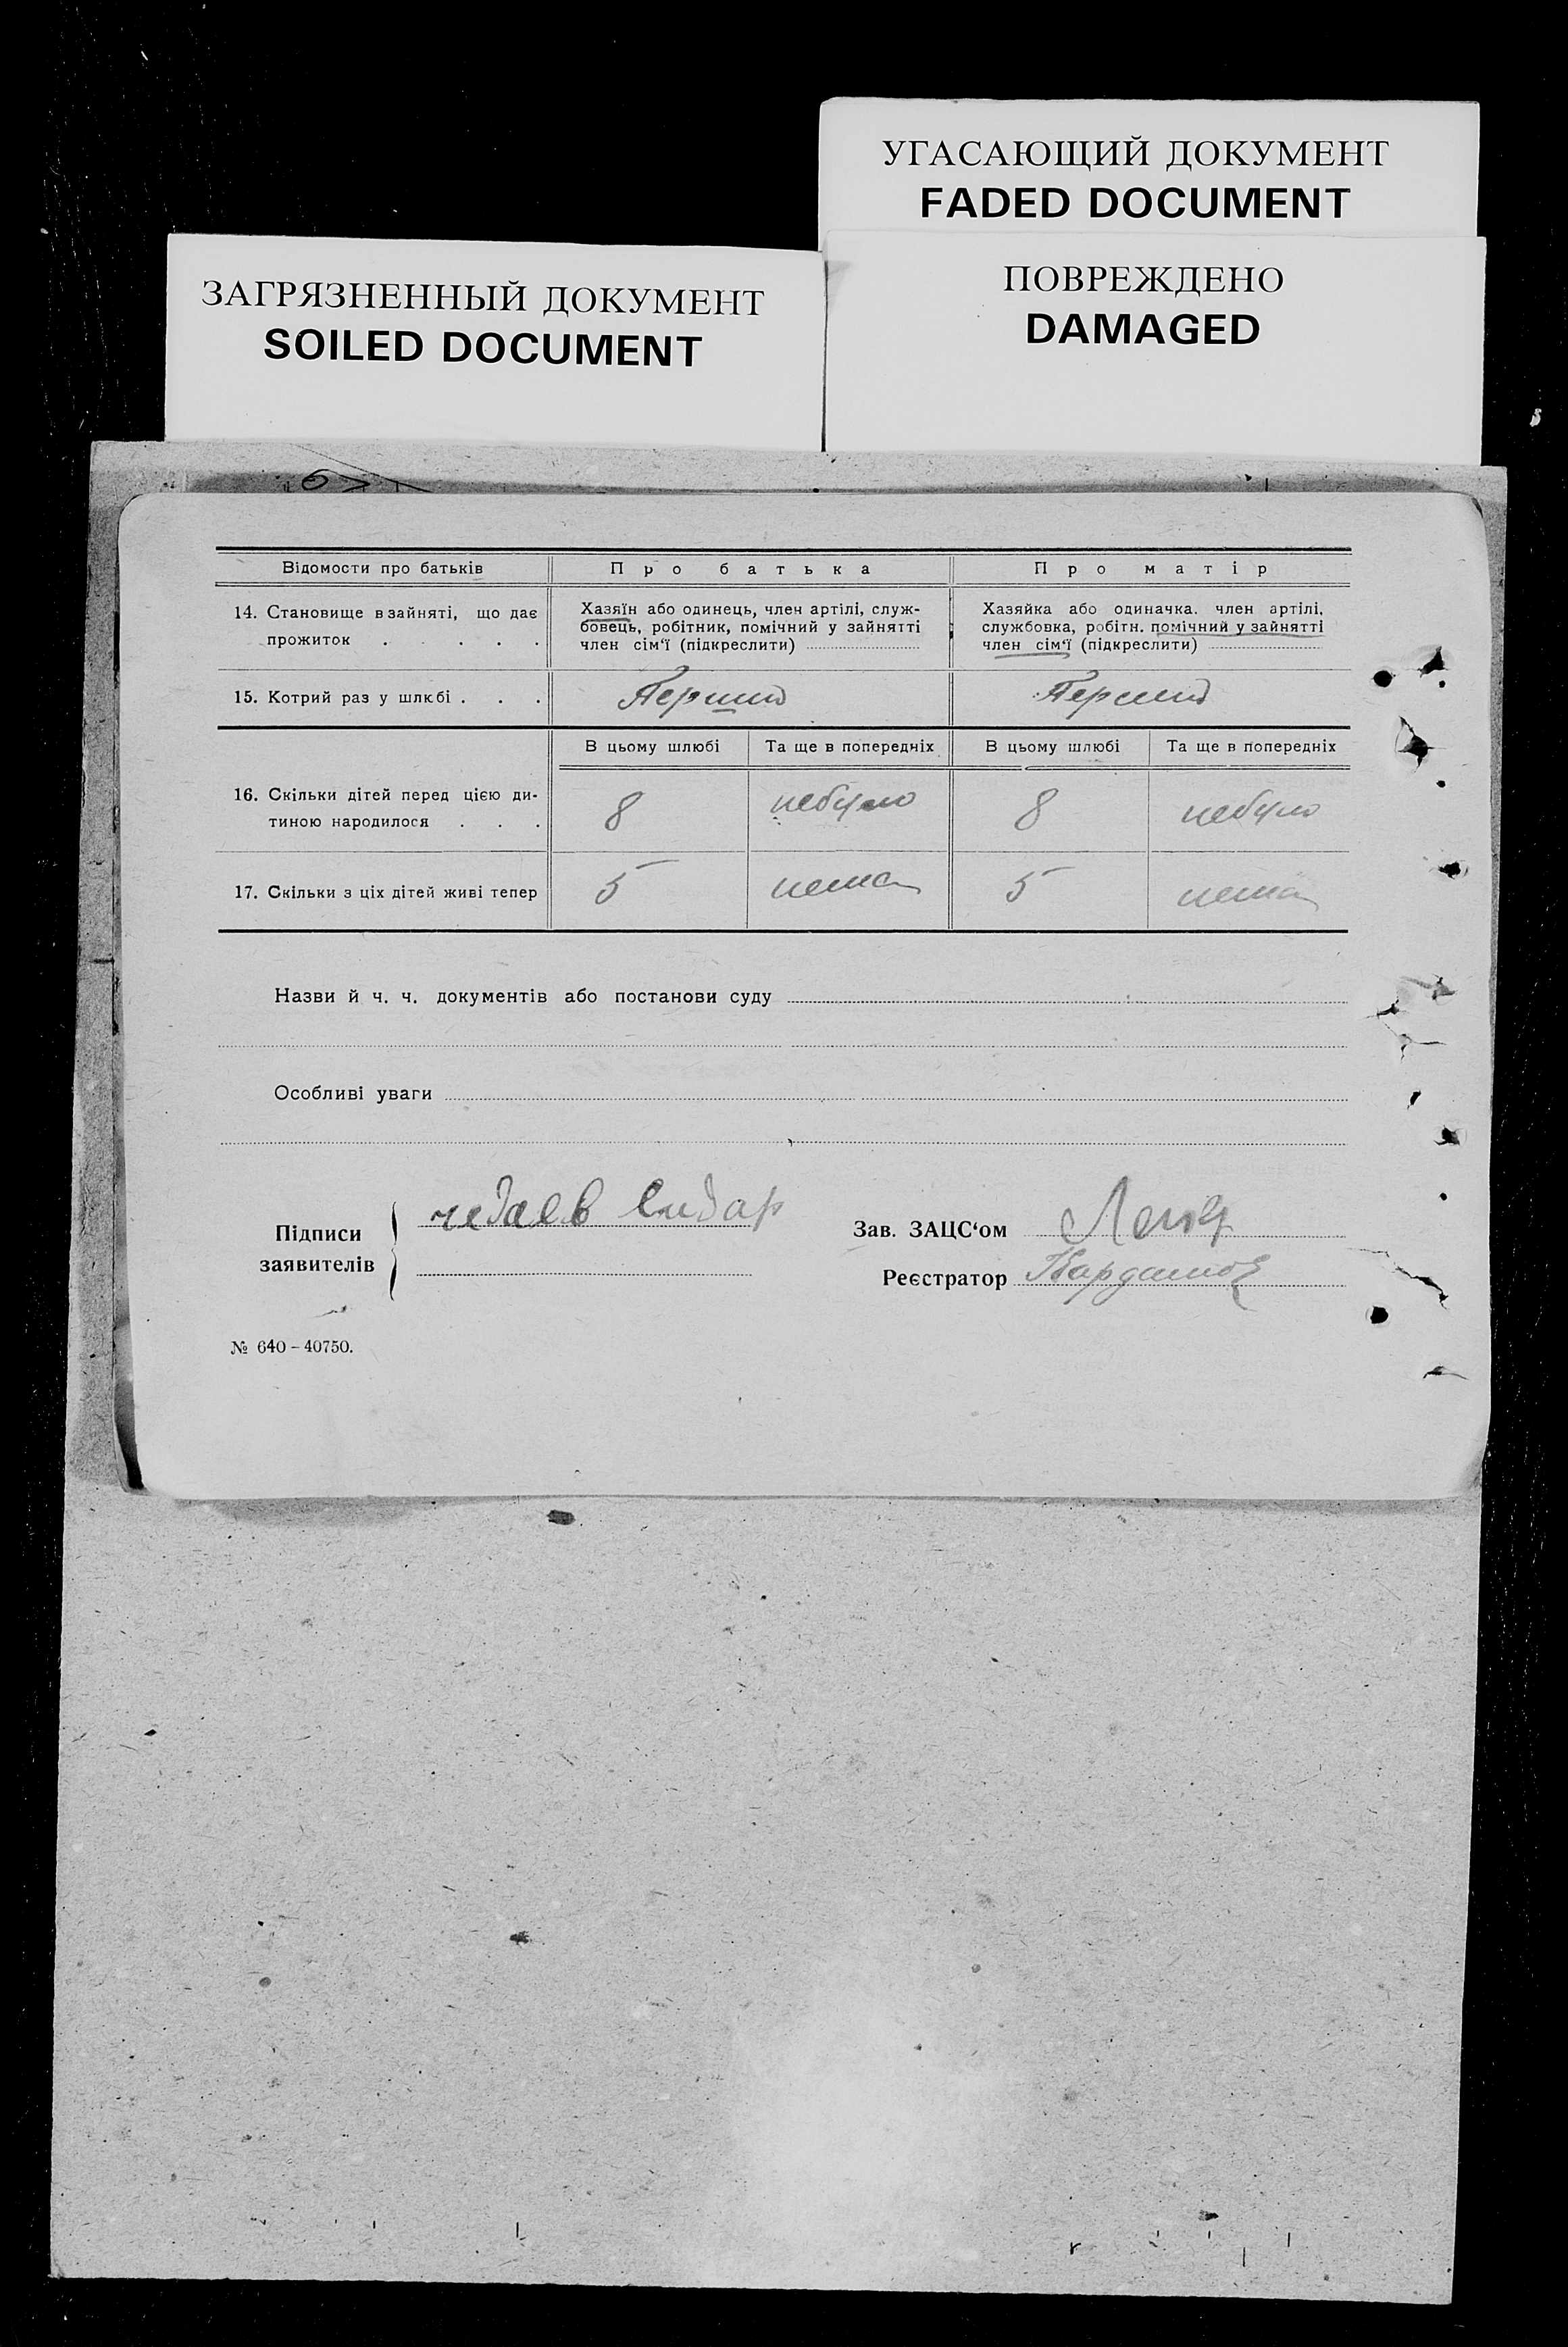 УГАСАЮЩИЙ ДОКУМЕНТ
FADED DOCUMENT
ЗАГРЯЗНЕННЫЙ ДОКУМЕНТ
SOILED DOCUMENT
ПОВРЕЖДЕНО
DAMAGED
Відомости про батьків Про батька Про матір
14. Становище в зайняті, що дає прожиток . . . .
Хазяїн або одинець, член артілі, служ-
бовець, робітник, помічний у зайнятті
член сім‘ї (підкреслити)
Хазяйка або одиначка. член артілі,
службовка, робітн. помічний у зайнятті
член сім‘ї (підкреслити)
15. Котрий раз у шлюбі . . . Перший Перший
В цьому шлюбі Та ще в попередніх В цьому шлюбі Та ще в попередніх
16. Скільки дітей перед цією ди-
тиною народилося . . . 8 небуло 8 небуло
17. Скільки з ціх дітей живі тепер 5 нема 5 нема
Назви й ч. ч. документів або постанови суду
Особливі уваги
Підписи
заявителів
Сидар
Зав. ЗАЦС‘ом
Реєстратор
№ 640 – 40750.